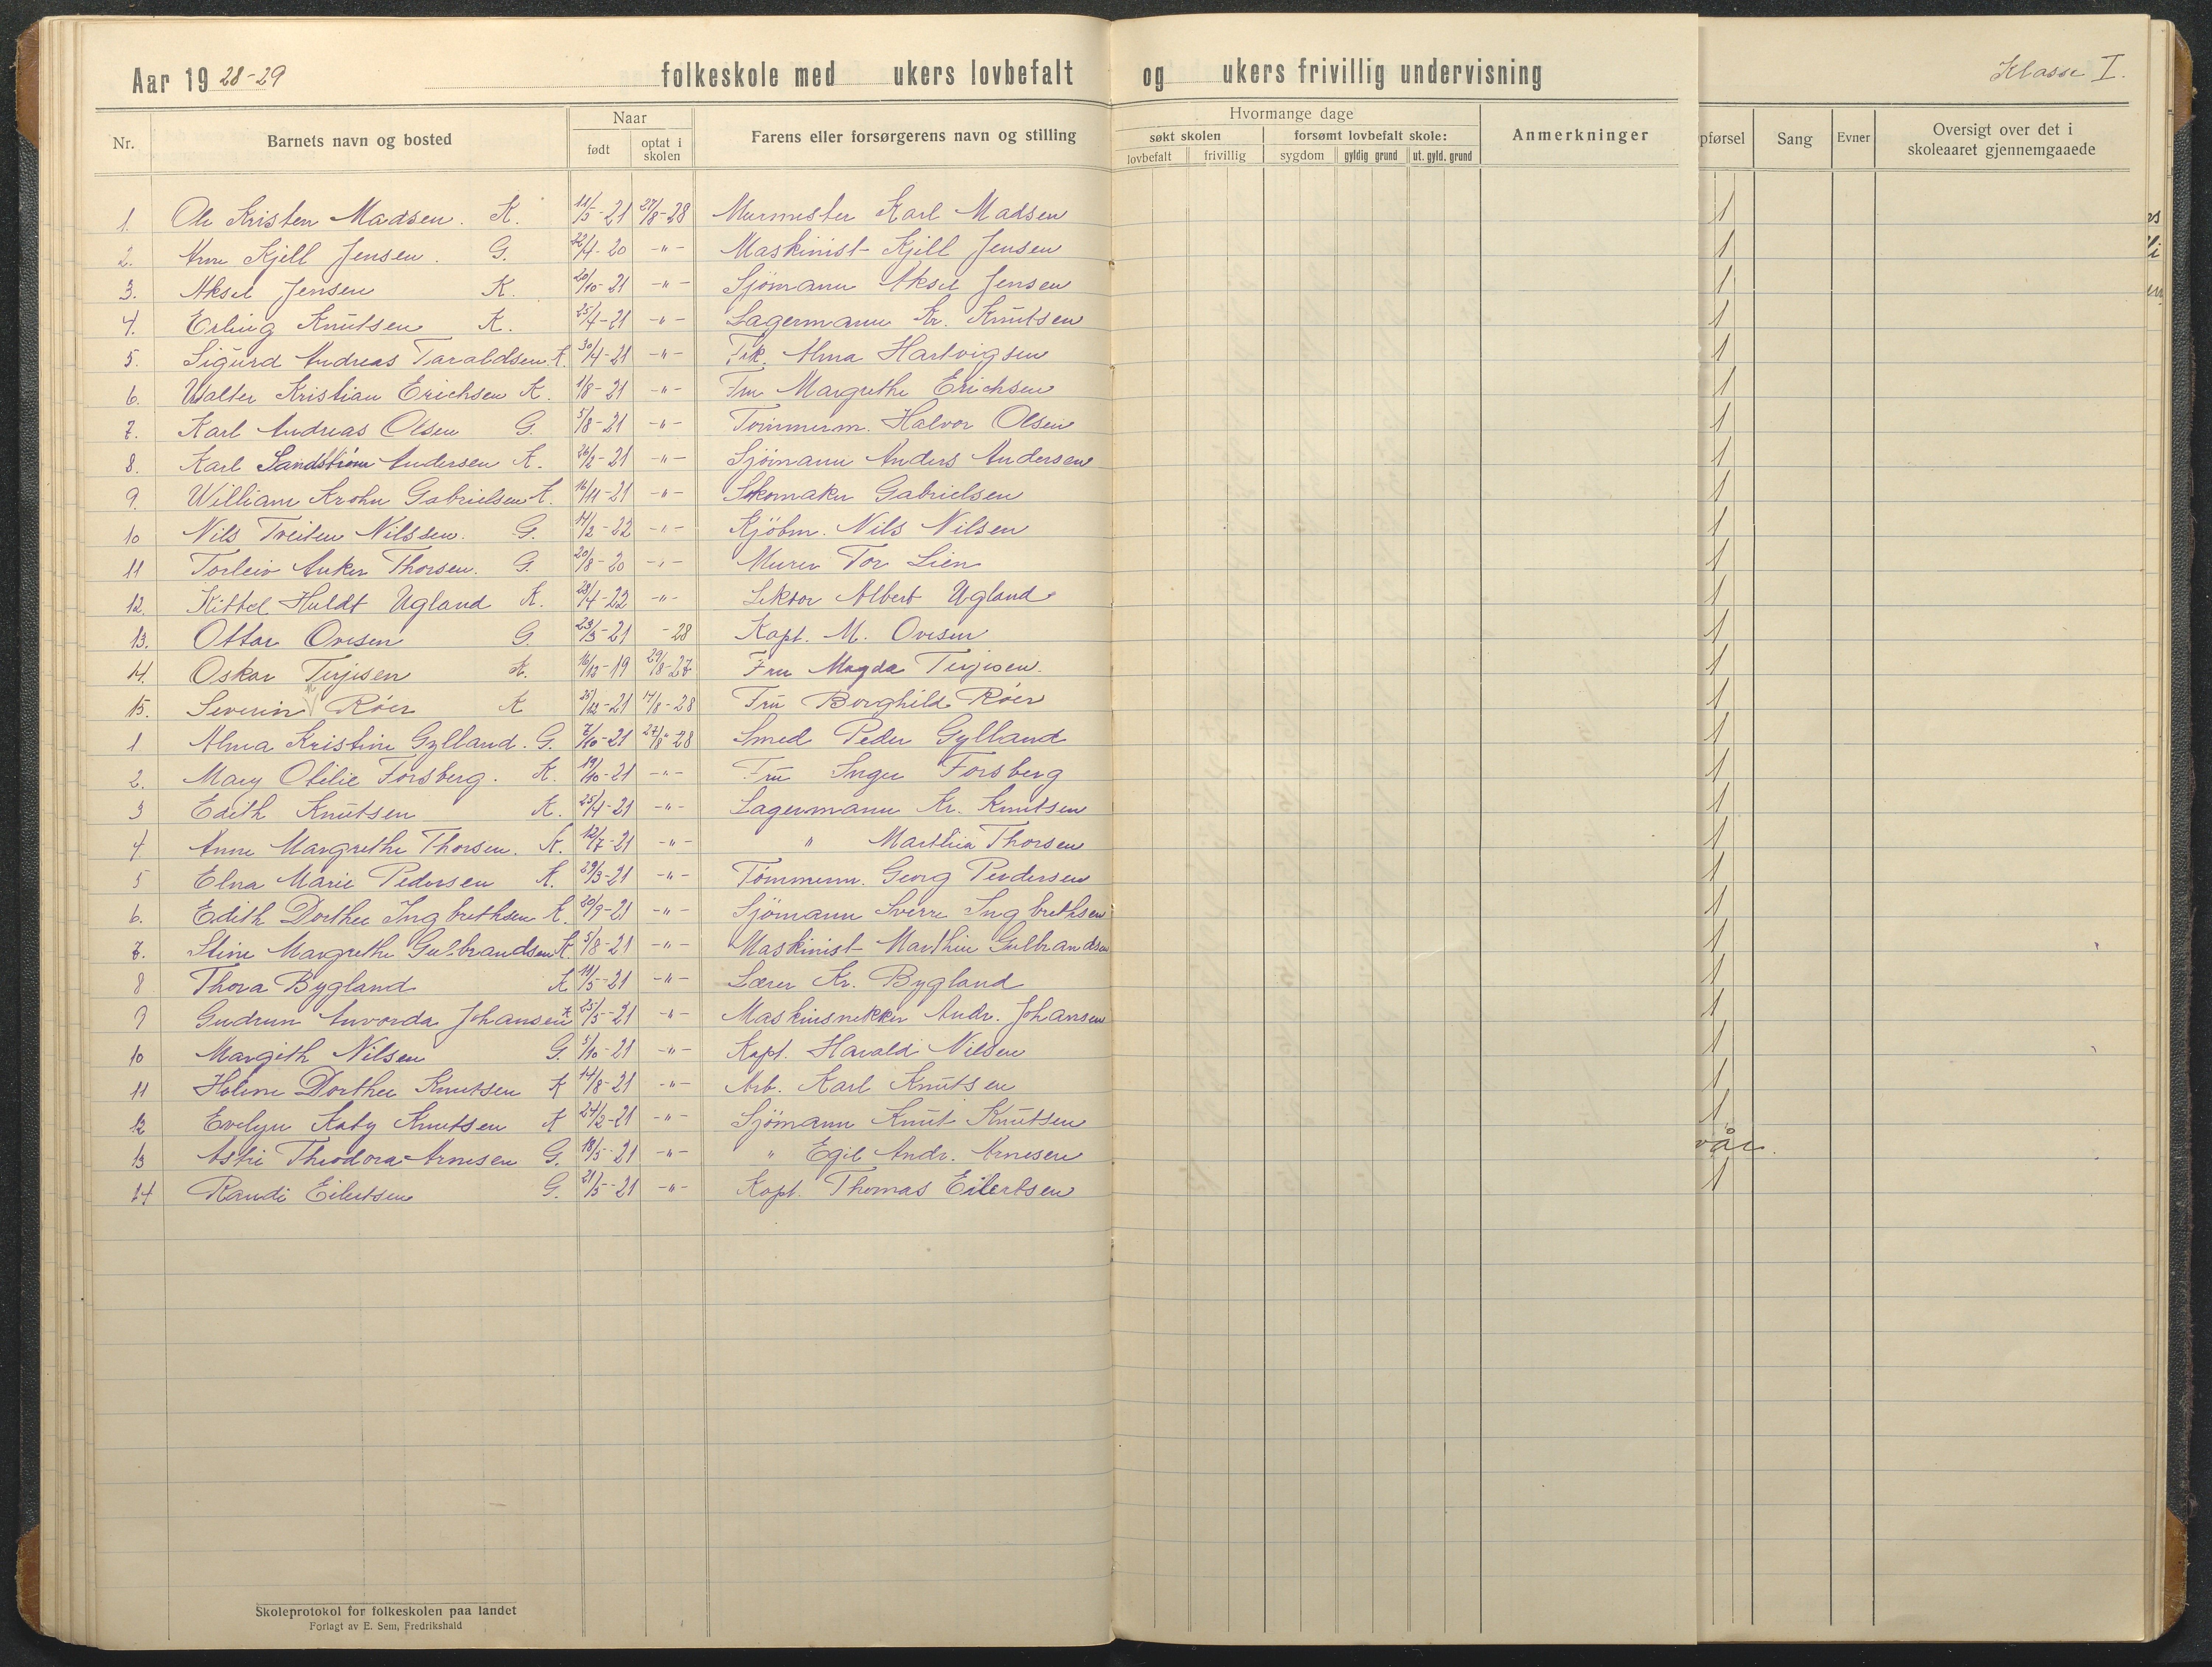 Aar 19 28-29 folkeskole med ukers lovbefalt og ukers frivillig undervisning Klasse I.
Nr. Barnets navn og bosted Naar født optat i skolen Farens eller forsørgerens navn og stilling Hvormange dage søkt skolen lovbefalt frivillig forsømt lovbefalt skole: sygdom gyldig grund ut. gyld. grund Anmerkninger pførsel Sang Evner Oversigt over det i skoleaaret gjennemgaaede
1. Ole Kristen Madsen. K. 11/5-21 27/8-28 Murmester Karl Madsen 1
2. Arne Kjell Jensen. G. 22/4-20 -"- Maskinist Kjell Jensen 1
3. Aksel Jensen K. 20/10-21 -"- Sjömann Aksel Jensen 1
4. Erling Knutsen K. 25/4-21 -"- Lagermann Kr. Knutsen 1
5. Sigurd Andreas Taraldsen K. 30/4-21 -"- Frk. Alma Hartvigsen 1
6. Walter Kristian Erichsen K. 1/8-21 -"- Fru Margrethe Erichsen 1
7. Karl Andreas Olsen G. 5/8-21 -"- Tömmerm. Halvor Olsen 1
8. Karl Sandström Andersen K. 26/2-21 -"- Sjömann Anders Andersen 1
9. William Krohn Gabrielsen K. 16/11-21 -"- Skomaker Gabrielsen 1
10 Nils Treiten Nilssen. G. 14/2-22 -"- Kjöbm. Nils Nilsen 1
11 Torleiv Anker Thorsen. G. 20/8-20 -"- Murer Tor Lien 1
12. Kittel Huldt Ugland K. 28/4-22 -"- Lektor Albert Ugland 1
13. Ottar Ovesen G. 23/3-21 -28 Kapt. M. Ovesen 1
14. Oskar Terjesen K. 16/12-19 29/8-27 Fru Magda Terjesen. 1
15. Severin Röer K 25/12-21 14/8-28 Fru Borghild Röer 1
1 Alma Kristine Gylland. G. 7/10-21 27/8-28 Smed Peder Gylland 1
2. Mary Otilie Forsberg. K. 19/10-21 -"- Fru Inger Forsberg 1
3 Edith Knutsen K. 25/4-21 -"- Lagermann Kr. Knutsen 1
4 Anne Margrethe Thorsen. K. 12/7-21 -"- " Marthia Thorsen 1
5 Elna Marie Pedersen K. 29/3-21 -"- Tömmerm. Georg Pedersen 1
6. Edith Dorthee Ingbrethsen K. 20/9-21 -"- Sjömann Sverre Ingbrethsen 1
7. Stine Margrethe Gulbrandsen K. 5/8-21 -"- Maskinist Marthin Gulbrandsen 1
8 Thora Bygland K 11/5-21 -"- Lærer Kr. Bygland 1
9 Gudrun Anvorda Johansen K 25/5-21 -"- Maskinsnekker Andr. Johansen 1
10 Margith Nilsen G. 5/10-21 -"- Kapt. Harald Nilsen 1
11 Helene Dorthee Knutsen K 14/8-21 -"- Arb. Karl Knutsen 1
12 Evelyn Katy Knutsen K 24/2-21 -"- Sjömann Knut Knutsen 1
13 Astri Theodora Arnesen G. 18/5-21 -"- " Egil Andr. Arnesen vår.
14 Randi Eilertsen G. 21/5-21 -"- Kapt. Thomas Eilertsen 1
Skoleprotokol for folkeskolen paa landet
Forlagt av E. Sem, Fredrikshald